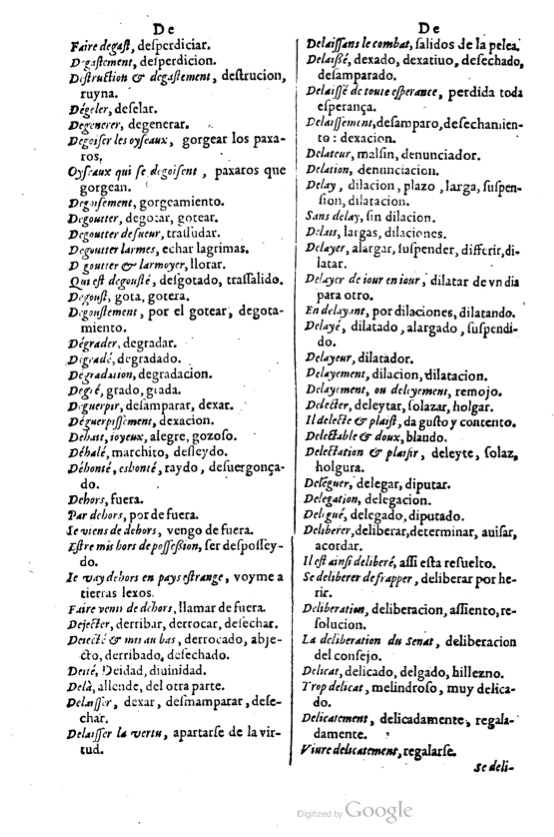 De
Faire degast, desperdiciar.
Degastement, desperdicion.
Destruction & degastement, destrucion,
ruyna.
Dégeler, deselar.
Degenerer, degenerar.
Degoiser les oyseaux, gorgear los paxa-
ros,
Oyseaux qui se degoisent, paxaros que
gorgean.
Degoisement, gorgeamiento.
Degoutter, degotar, gotear.
Degoutter de sueur, trassudar.
Degoutter larmes, echar lagrimas.
Degoutter & larmoyer, llorar.
Qui est degousté, desgotado, trassalido.
Degoust, gota, gotera.
Degoustement, por el gotear, degota-
miento.
Dégrader, degradar.
Degradé, degradado.
Degradation, degradacion.
Degré, grado, grada.
Deguerpir, desamparar, dexar.
Déguerpissement, dexacion.
Dehait, ioyeux, alegre, gozoso.
Déhalé, marchito, desleydo.
Déhonté, eshonté, raydo, desuergonça-
do.
Dehors, fuera.
Par dehors, por de fuera.
Ie viens de dehors, vengo de fuera.
Estre mis hors de possession, ser despossey-
do.
Ie vay dehors en pays estrange, voyme a
tierras lexos.
Faire venir de dehors, llamar de fuera.
Dejecter, derribar, derrocar, desechar.
Deiecté & mis au bas, derrocado, abje-
cto, derribado, desechado.
Deité, Deidad, diuinidad.
Delà, allende, del otra parte.
Delaisser, dexar, desmamparar, dese-
char.
Delaisser la vertu, apartarse de la vir-
tud.
De
Delaissans le combat, salidos de la pelea.
Delaissé, dexado, dexatiuo, desechado,
desamparado.
Delaissé de toute esperance, perdida toda
esperança.
Delaissement, desamparo, desechamien-
to: dexacion.
Delateur, malsin, denunciador.
Delation, denunciacion.
Delay, dilacion, plazo, larga, suspen-
sion, dilatacion.
Sans delay, sin dilacion.
Delais, largas, dilaciones.
Delayer, alargar, suspender, differir, di-
latar.
Delayer de iour en iour, dilatar de vn dia
para otro.
En delayant, por dilaciones, dilatando.
Delayé, dilatado, alargado, suspendi-
do.
Delayeur, dilatador.
Delayement, dilacion, dilatacion.
Delayement, ou deliyement, remojo.
Delecter, deleytar, solazar, holgar.
Il delecte & plaist, da gusto y contento.
Delectable & doux, blando.
Delectation & plaisir, deleyte, solaz,
holgura.
Deleguer, delegar, diputar.
Delegation, delegacion.
Delegué, delegado, diputado.
Deliberer, deliberar, determinar, auisar,
acordar.
Il est ainsi deliberé, assi esta resuelto.
Se deliberer de frapper, deliberar por he-
rir.
Deliberation, deliberacion, assiento, re-
solucion.
La deliberation du Senat, deliberacion
del consejo.
Delicat, delicado, delgado, hillezno.
Trop delicat, melindroso, muy delica-
do.
Delicatement, delicadamente, regala-
damente.
Viure delicatement, regalarse.
Se deli-
Digitized by Google